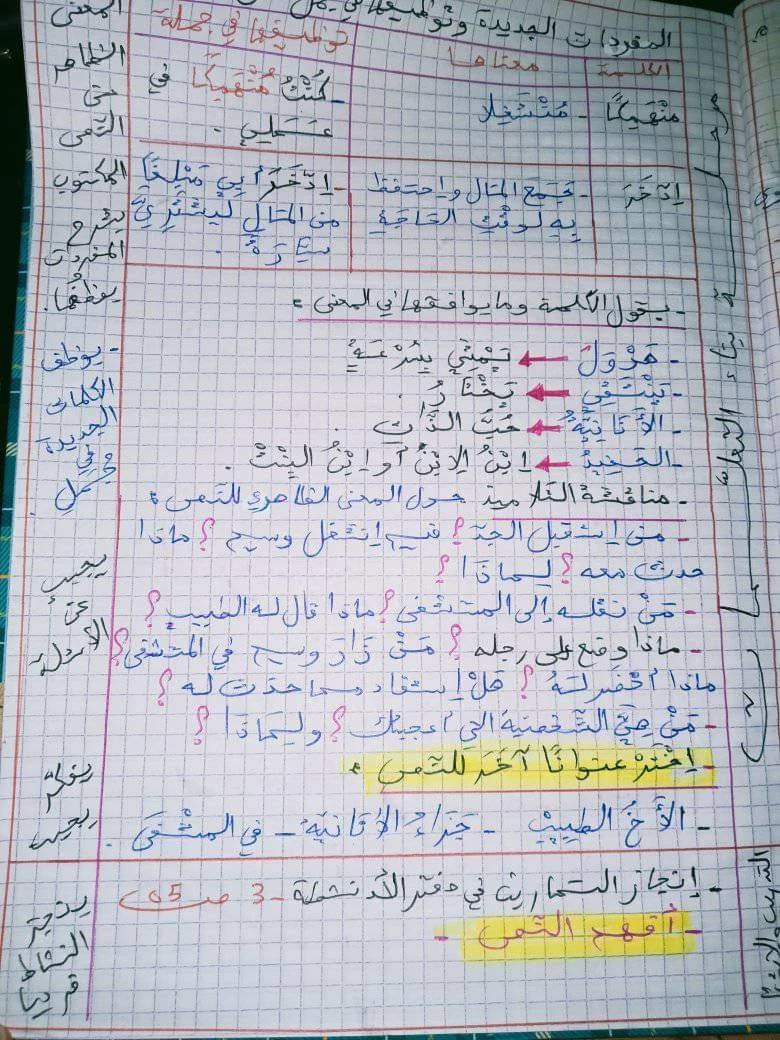 المفردات الجديدة وتوظيفها في جمل
الكلمة
معناها
توظيفها في جملة
مُنْهَمِكًا
- مُنْشَغِلًا
- كُنْتُ مُنْهَمِكًا فِي
عَمَلِي.
اِدَّخَرَ
- جَمَعَ المَال واحتفظ
بِهِ لِوَقْتِ الحَاجَةِ
- اِدَّخَرَ أَبِي مَبْلَغًا
مِنَ المَالِ لِيَشْتَرِيَ
سَيَّارَةً.
- يقول الكلمة وما يوافقها في المعنى:
- هَرْوَلَ ← يَمْشِي بِسُرْعَةٍ
- يَنْتَقِي ← يَخْتَارُ.
- الأَنَانِيَّةُ ← حُبُّ الذَّاتِ.
- الحَفِيدُ ← اِبْنُ الاِبْنِ أَو اِبْنُ البِنْتِ.
- مناقشة التلاميذ حول المعنى الظاهري للنص:
- متى استقبل الجدّ؟ فيم انشغل وسيم؟ ماذا
حدث معه؟ لِمَاذَا؟
- مَنْ نقله إلى المستشفى؟ ماذا قال له الطبيب؟
- ماذا وقع على رجله؟ مَنْ زَارَ وسيم في المستشفى؟
ماذا أحْضَرَ لَهُ؟ هَلْ اِستفاد مما حدَث له؟
- مَنْ هِيَ الشّخصية التي أعجبتك؟ ولِمَاذَا؟
- اِخْتَرْ عنوانًا آخَرَ لِلنّص:
- الأَخُ الطَّيِّبُ - جَزَاءُ الأَنَانِيَّةِ - في المستشْفَى.
- إنجاز التمارين في دفتر الأنشطة - 3 ص 65
- أفهم النّص -
المعنى
الظاهر
حتى
النص
المكتوب
يشرح
المفردات
و
يوظفها.
- يوظف
الكلمات
الجديدة
في
جمل
يجيب
عن
الأسئلة
يفكر
يجيب
ينجز
النشاط
فرديا
مرحلة بناء التعلمات
التدريب والاستثمار